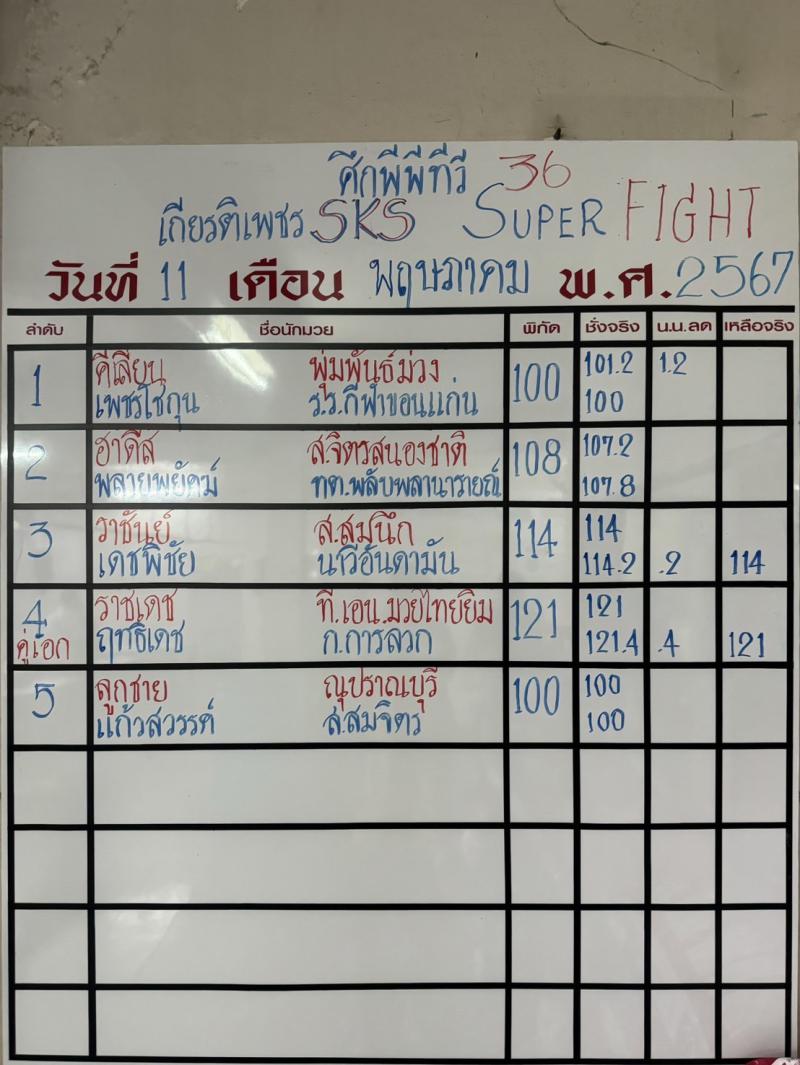 ศึกพีพีทีวี 36
เกียรติเพชร SKS SUPER FIGHT
วันที่ 11 เดือน พฤษภาคม พ.ศ. 2567
ลำดับ ชื่อนักมวย พิกัด ชั่งจริง น.น.ลด เหลือจริง
1 คีเลียน พุ่มพันธ์ม่วง 100 101.2 1.2
เพชรโชกุน ร.ร.กีฬาขอนแก่น 100
2 ฮาดีส ส.จิตรสนองชาติ 108 107.2
พลายพยัคฆ์ ทต.พลับพลานารายณ์ 107.8
3 ราชันย์ ส.สมนึก 114 114
เดชพิชัย นาวีอันดามัน 114.2 .2 114
4 ราชเดช ที.เอ็น.มวยไทยยิม 121 121
คู่เอก ฤทธิเดช ก.การลวก 121.4 .4 121
5 ลูกชาย ณุปราณบุรี 100 100
แก้วสวรรค์ ส.สมจิตร 100